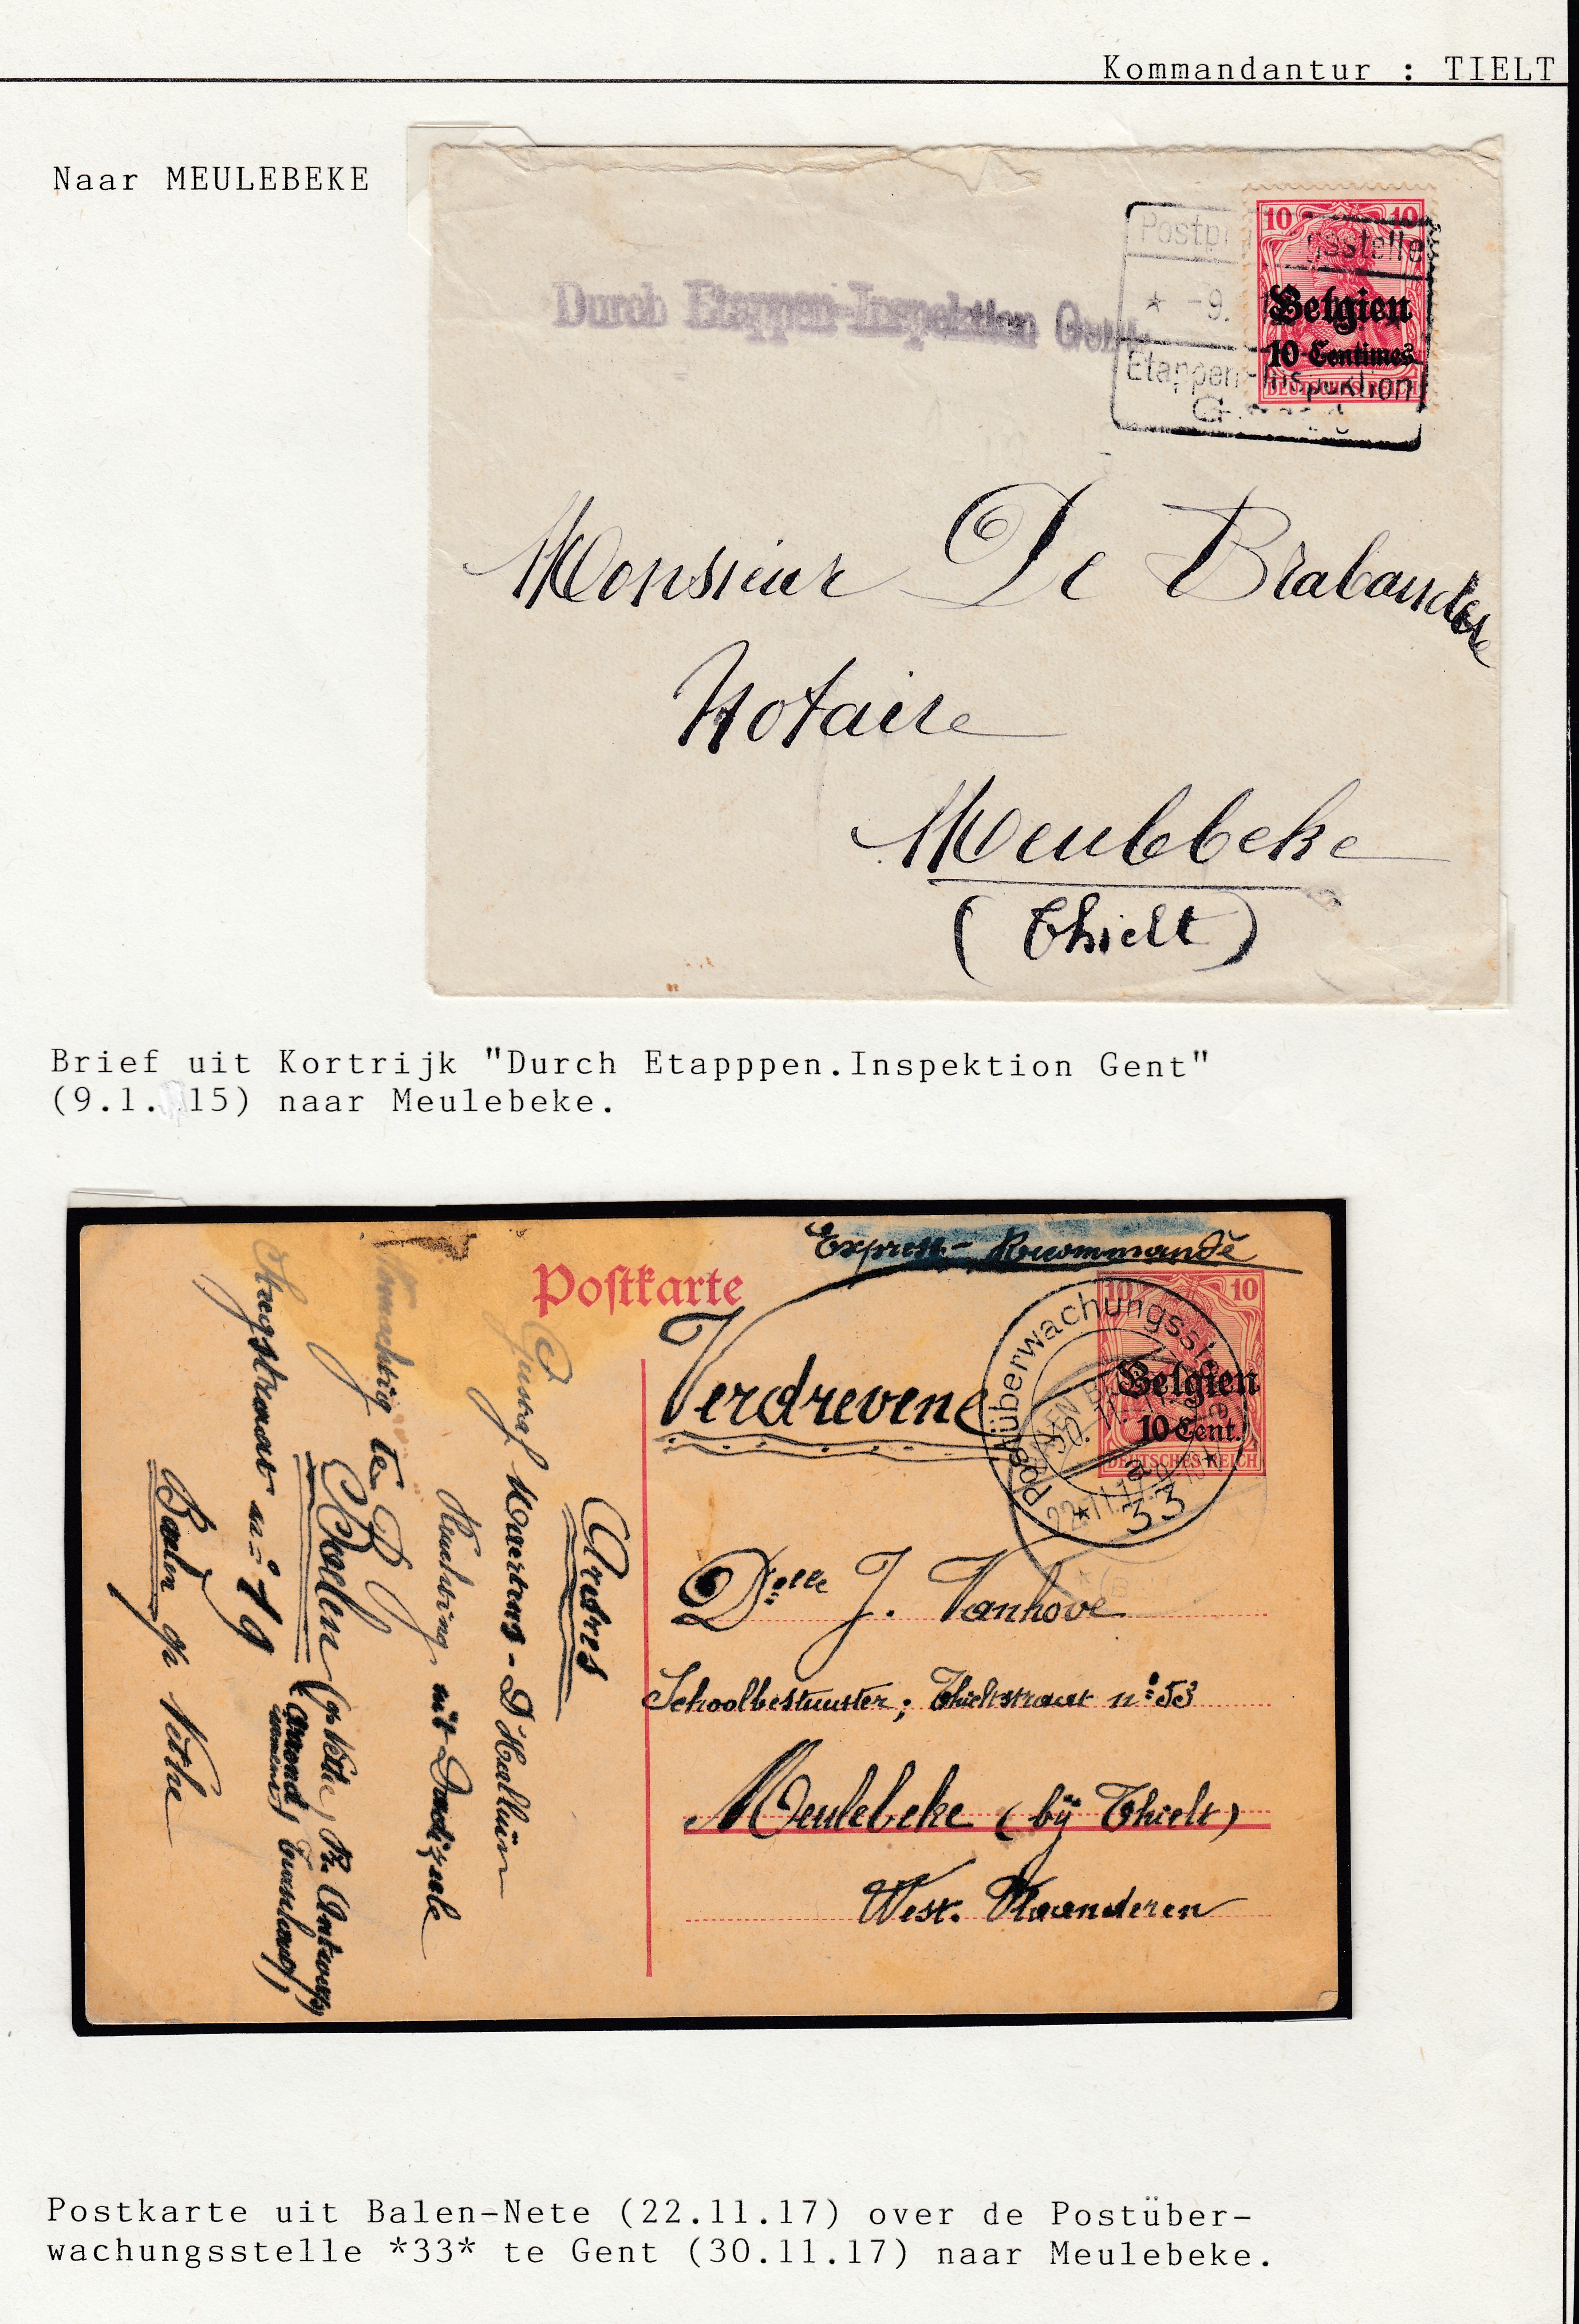 Kommandantur : TIELT
Naar MEULEBEKE
Durch Etappen-Inspektion Gent
10 10
Belgien
10 Centimes
DEUTSCHES REICH
★ -9.
Etappen-Inspektion
Monsieur De Brabandere
Notaire
Meulebeke
(Thielt)
Brief uit Kortrijk "Durch Etapppen.Inspektion Gent"
(9.1. 15) naar Meulebeke.
Express - Recommandé
Postkarte
10 10
Belgien
10 Cent.
DEUTSCHES REICH
Postüberwachungsstelle
30. 11.
22.11.17
★ 33 ★
Verdrevene
Delle J. Vanhove
Schoolbestuurster; Thieltstraat n: 53
Meulebeke (bij Thielt)
West. Vlaanderen
Adres
Gustaf Maertens - D'Halluin
Vluchteling uit Dadizeele
Woonachtig te
Baelen (op Nethe, P. Antwerp)
Arrond. Turnhout)
n: 19
Baelen op Nethe
Postkarte uit Balen-Nete (22.11.17) over de Postüber-
wachungsstelle *33* te Gent (30.11.17) naar Meulebeke.